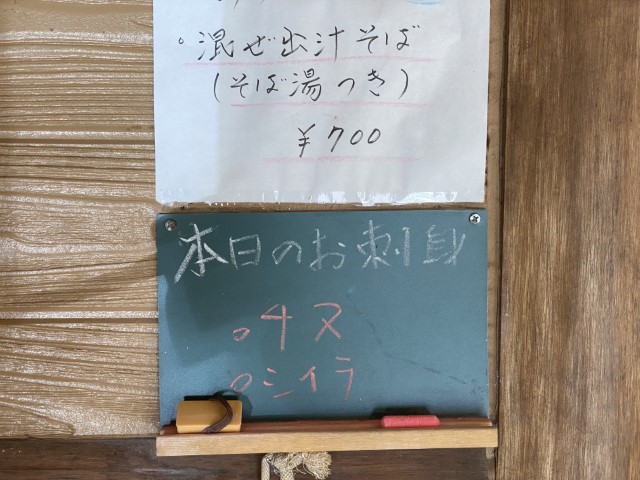 。混ぜ出汁そば
(そば湯つき)
¥700
本日のお刺身
。チヌ
。シイラ